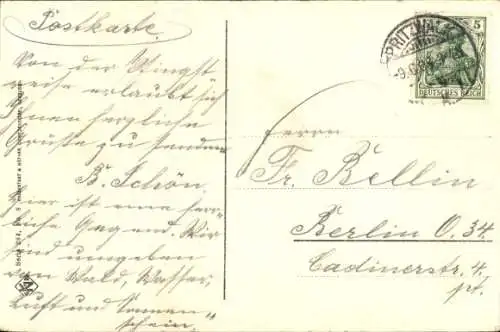 Postkarte.
Von der Pfingst
reise erlaubt sich
Ihnen herzliche
Grüße zu senden
B. Schön.
Hier ist eine herr-
liche Gegend. Wir
sind umgeben
von Wald, Wasser,
Luft und Sonnen-
schein.
PRITZWALK
5
DEUTSCHES REICH
Herrn
Fr. Bellin
Berlin O. 34.
Cadinerstr. 4.
pt.